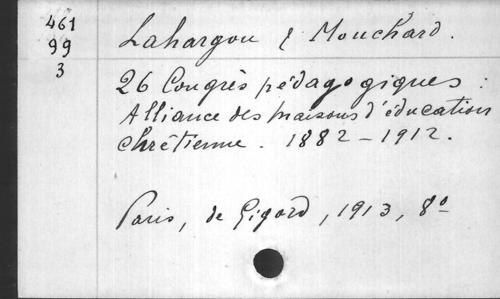 461
99
3
Lahargou & Mouchard.
26 Congrès pédagogiques :
Alliance des maisons d'éducation
chrétienne. 1882 - 1912.
Paris, de Gigord, 1913, 8º